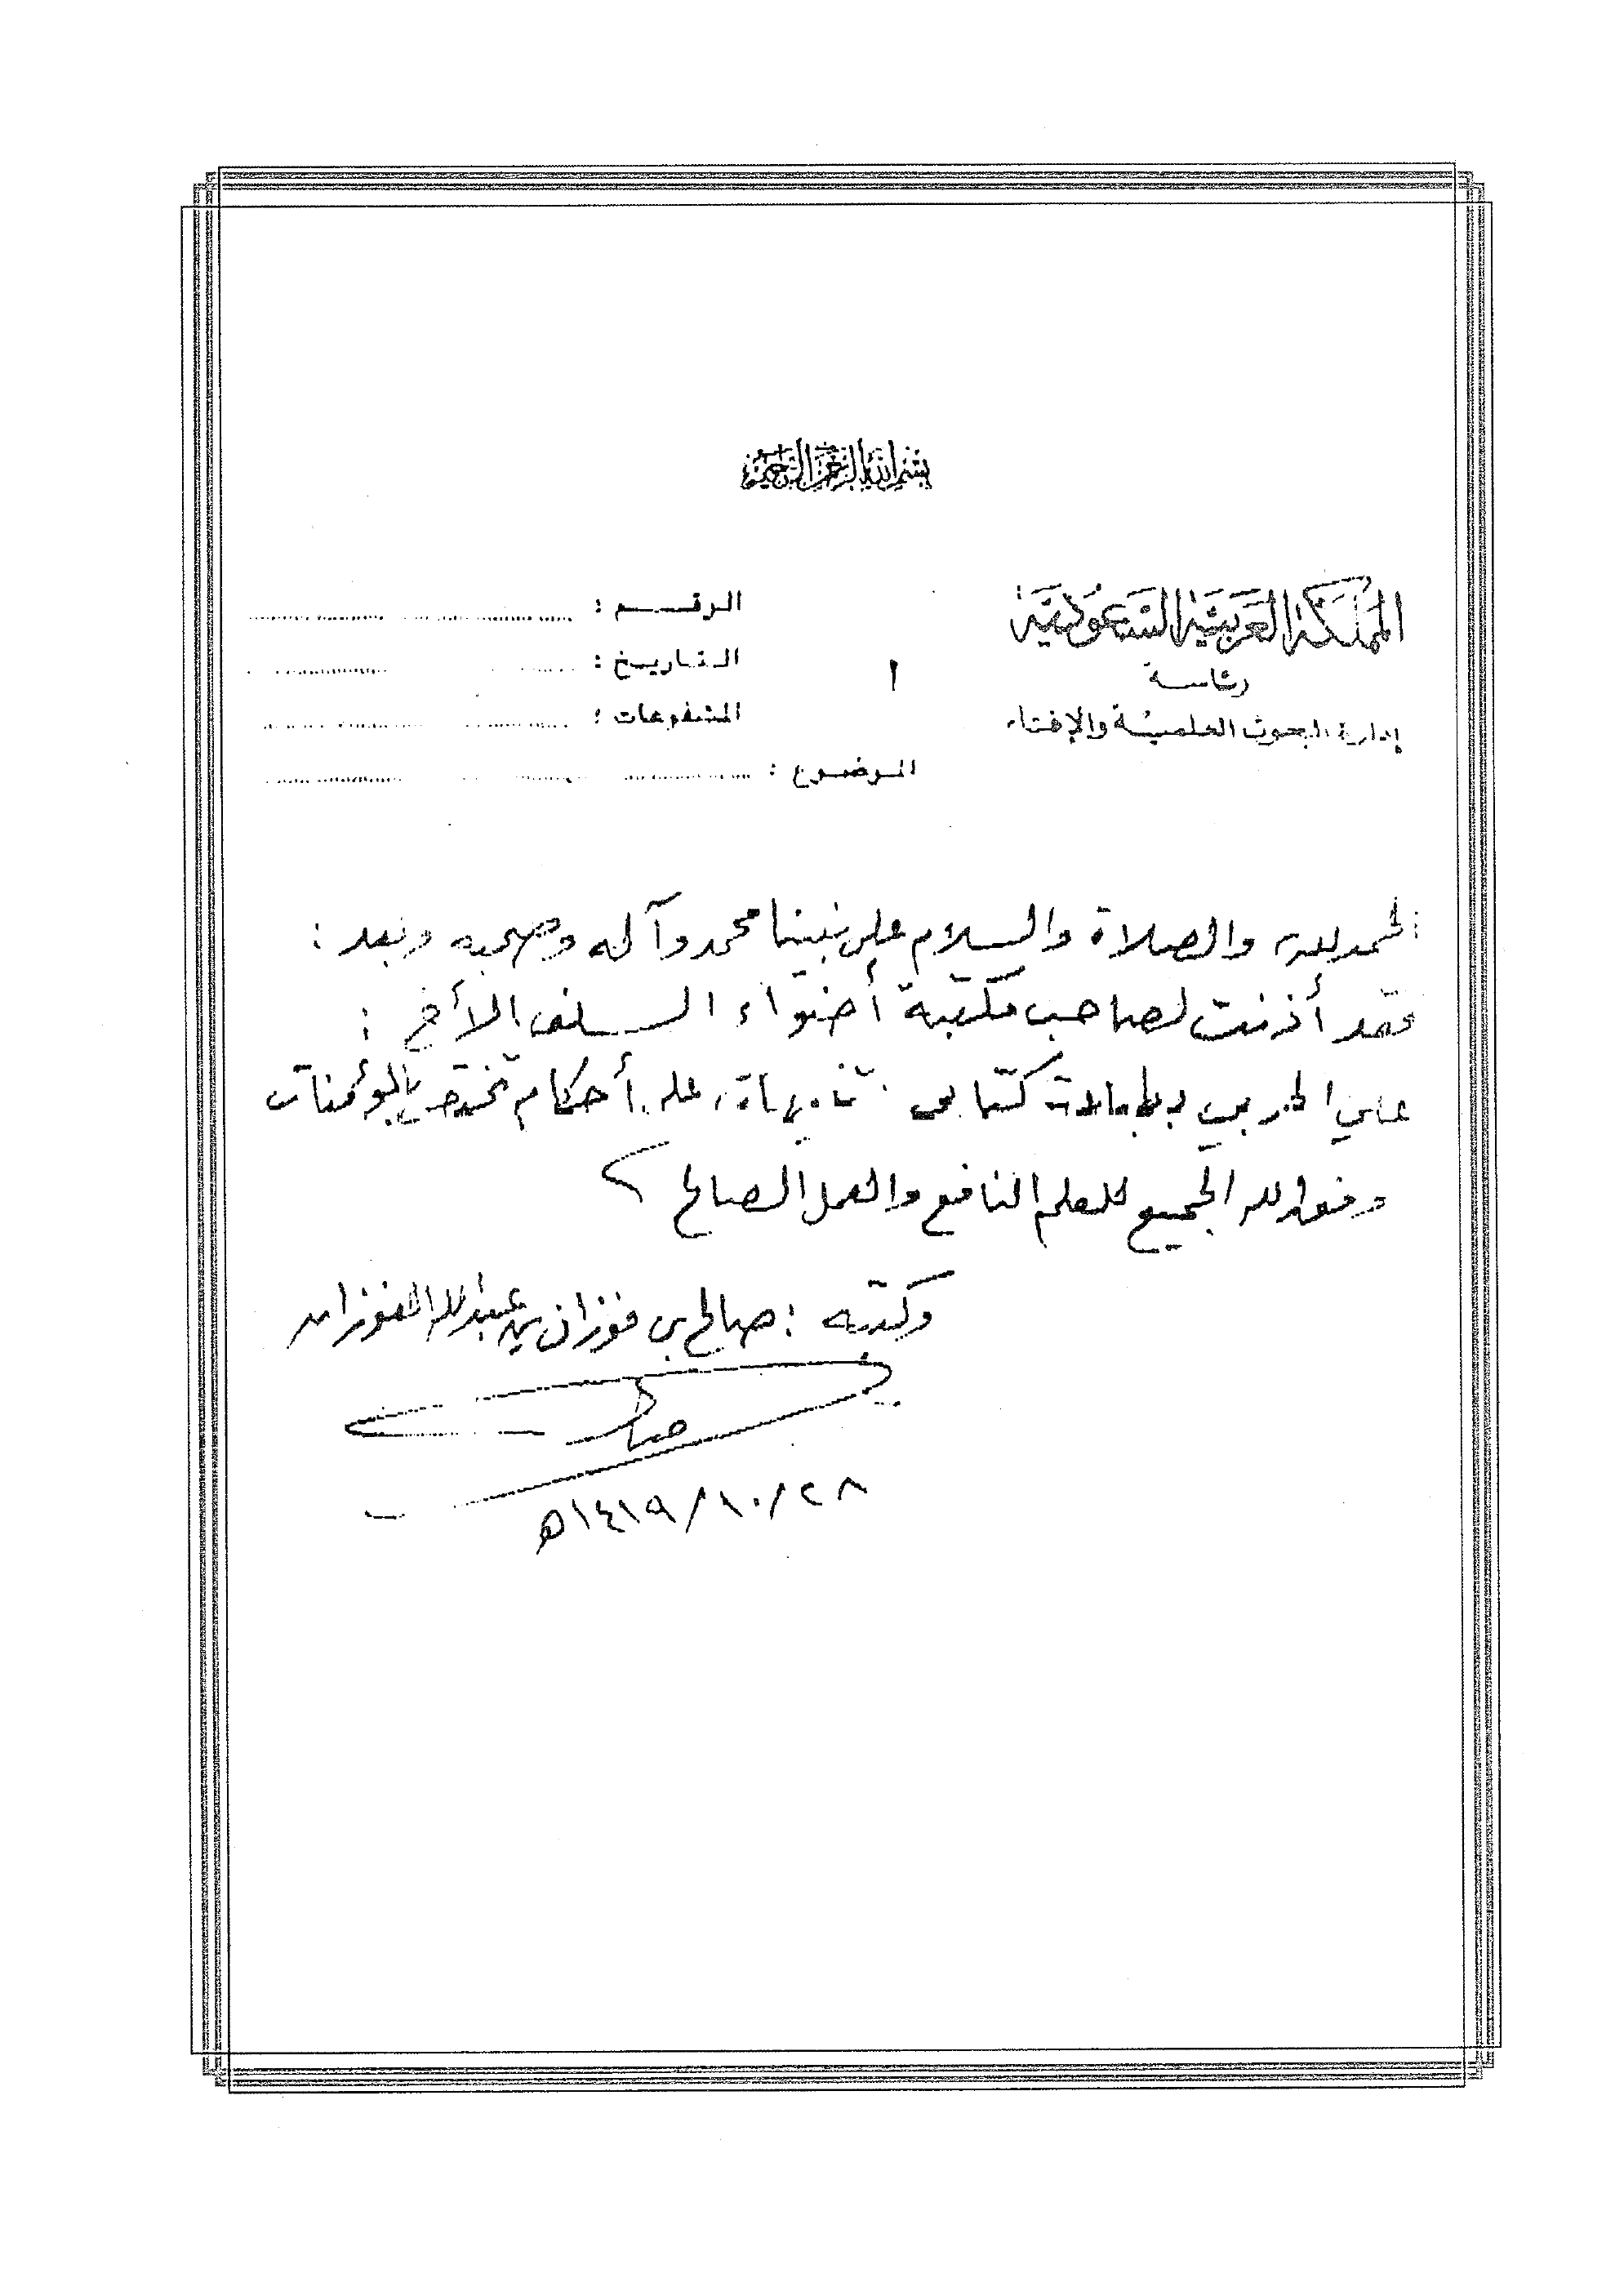 بسم الله الرحمن الرحيم
المملكة العربية السعودية
رئاسة
إدارة البحوث العلمية والإفتاء
الرقم :
التاريخ :
المشفوعات :
الموضوع :
الحمد لله والصلاة والسلام على نبينا محمد وآله وصحبه وبعد :
فقد أذنت لصاحب مكتبة أضواء السلف الأخ :
علي الحربي بطباعة كتابي تنبيهات على أحكام تختص بالمؤمنات
وفق الله الجميع للعلم النافع والعمل الصالح
وكتبه : صالح بن فوزان بن عبدالله الفوزان
صالح
٢٨/١٠/١٤١٩هـ